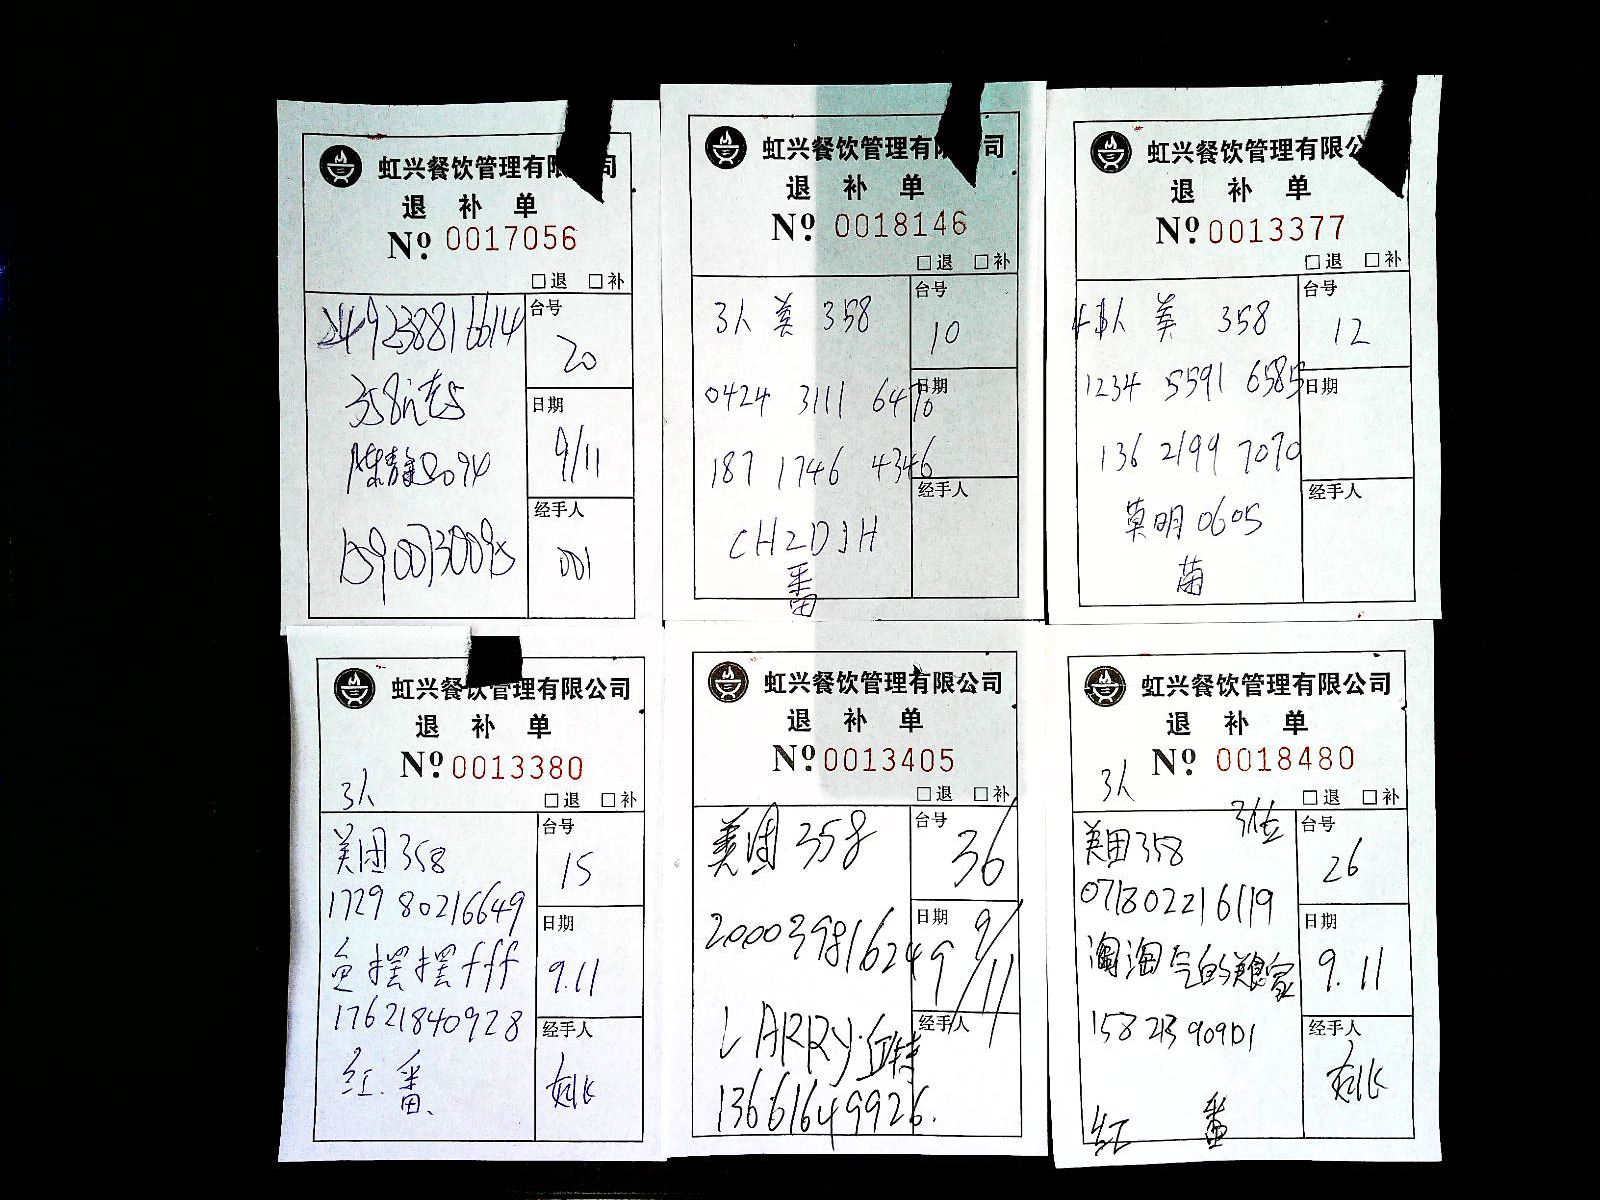 虹兴餐饮管理有限公司
退 补 单
Nº 0017056
□退 □补
249238816614
台号
20
358
日期
9/11
陈静
经手人
001
虹兴餐饮管理有限公司
退 补 单
Nº 0018146
□退 □补
3人 美 358
台号
10
0424 3111 6470
日期
187 1746 4346
经手人
CH2DJH
番
虹兴餐饮管理有限公
退 补 单
Nº 0013377
□退 □补
人 美 358
台号
12
1234 5591 6585
日期
136 2199 7070
经手人
莫明0605
虹兴餐饮管理有限公司
退 补 单
Nº 0013380
3人
□退 □补
美团358
台号
15
1729 80216649
日期
9.11
鱼摆摆fff
17621840928
经手人
红.番、
虹兴餐饮管理有限公司
退 补 单
Nº 0013405
□退 □补
美团 358
台号
36
200039816249
日期
9/11
LARRY·丘特
经手人
13661649926.
虹兴餐饮管理有限公司
退 补 单
Nº 0018480
3人
□退 □补
3位
美团358
台号
26
071802216119
日期
9.11
淘淘气的
经手人
红 番